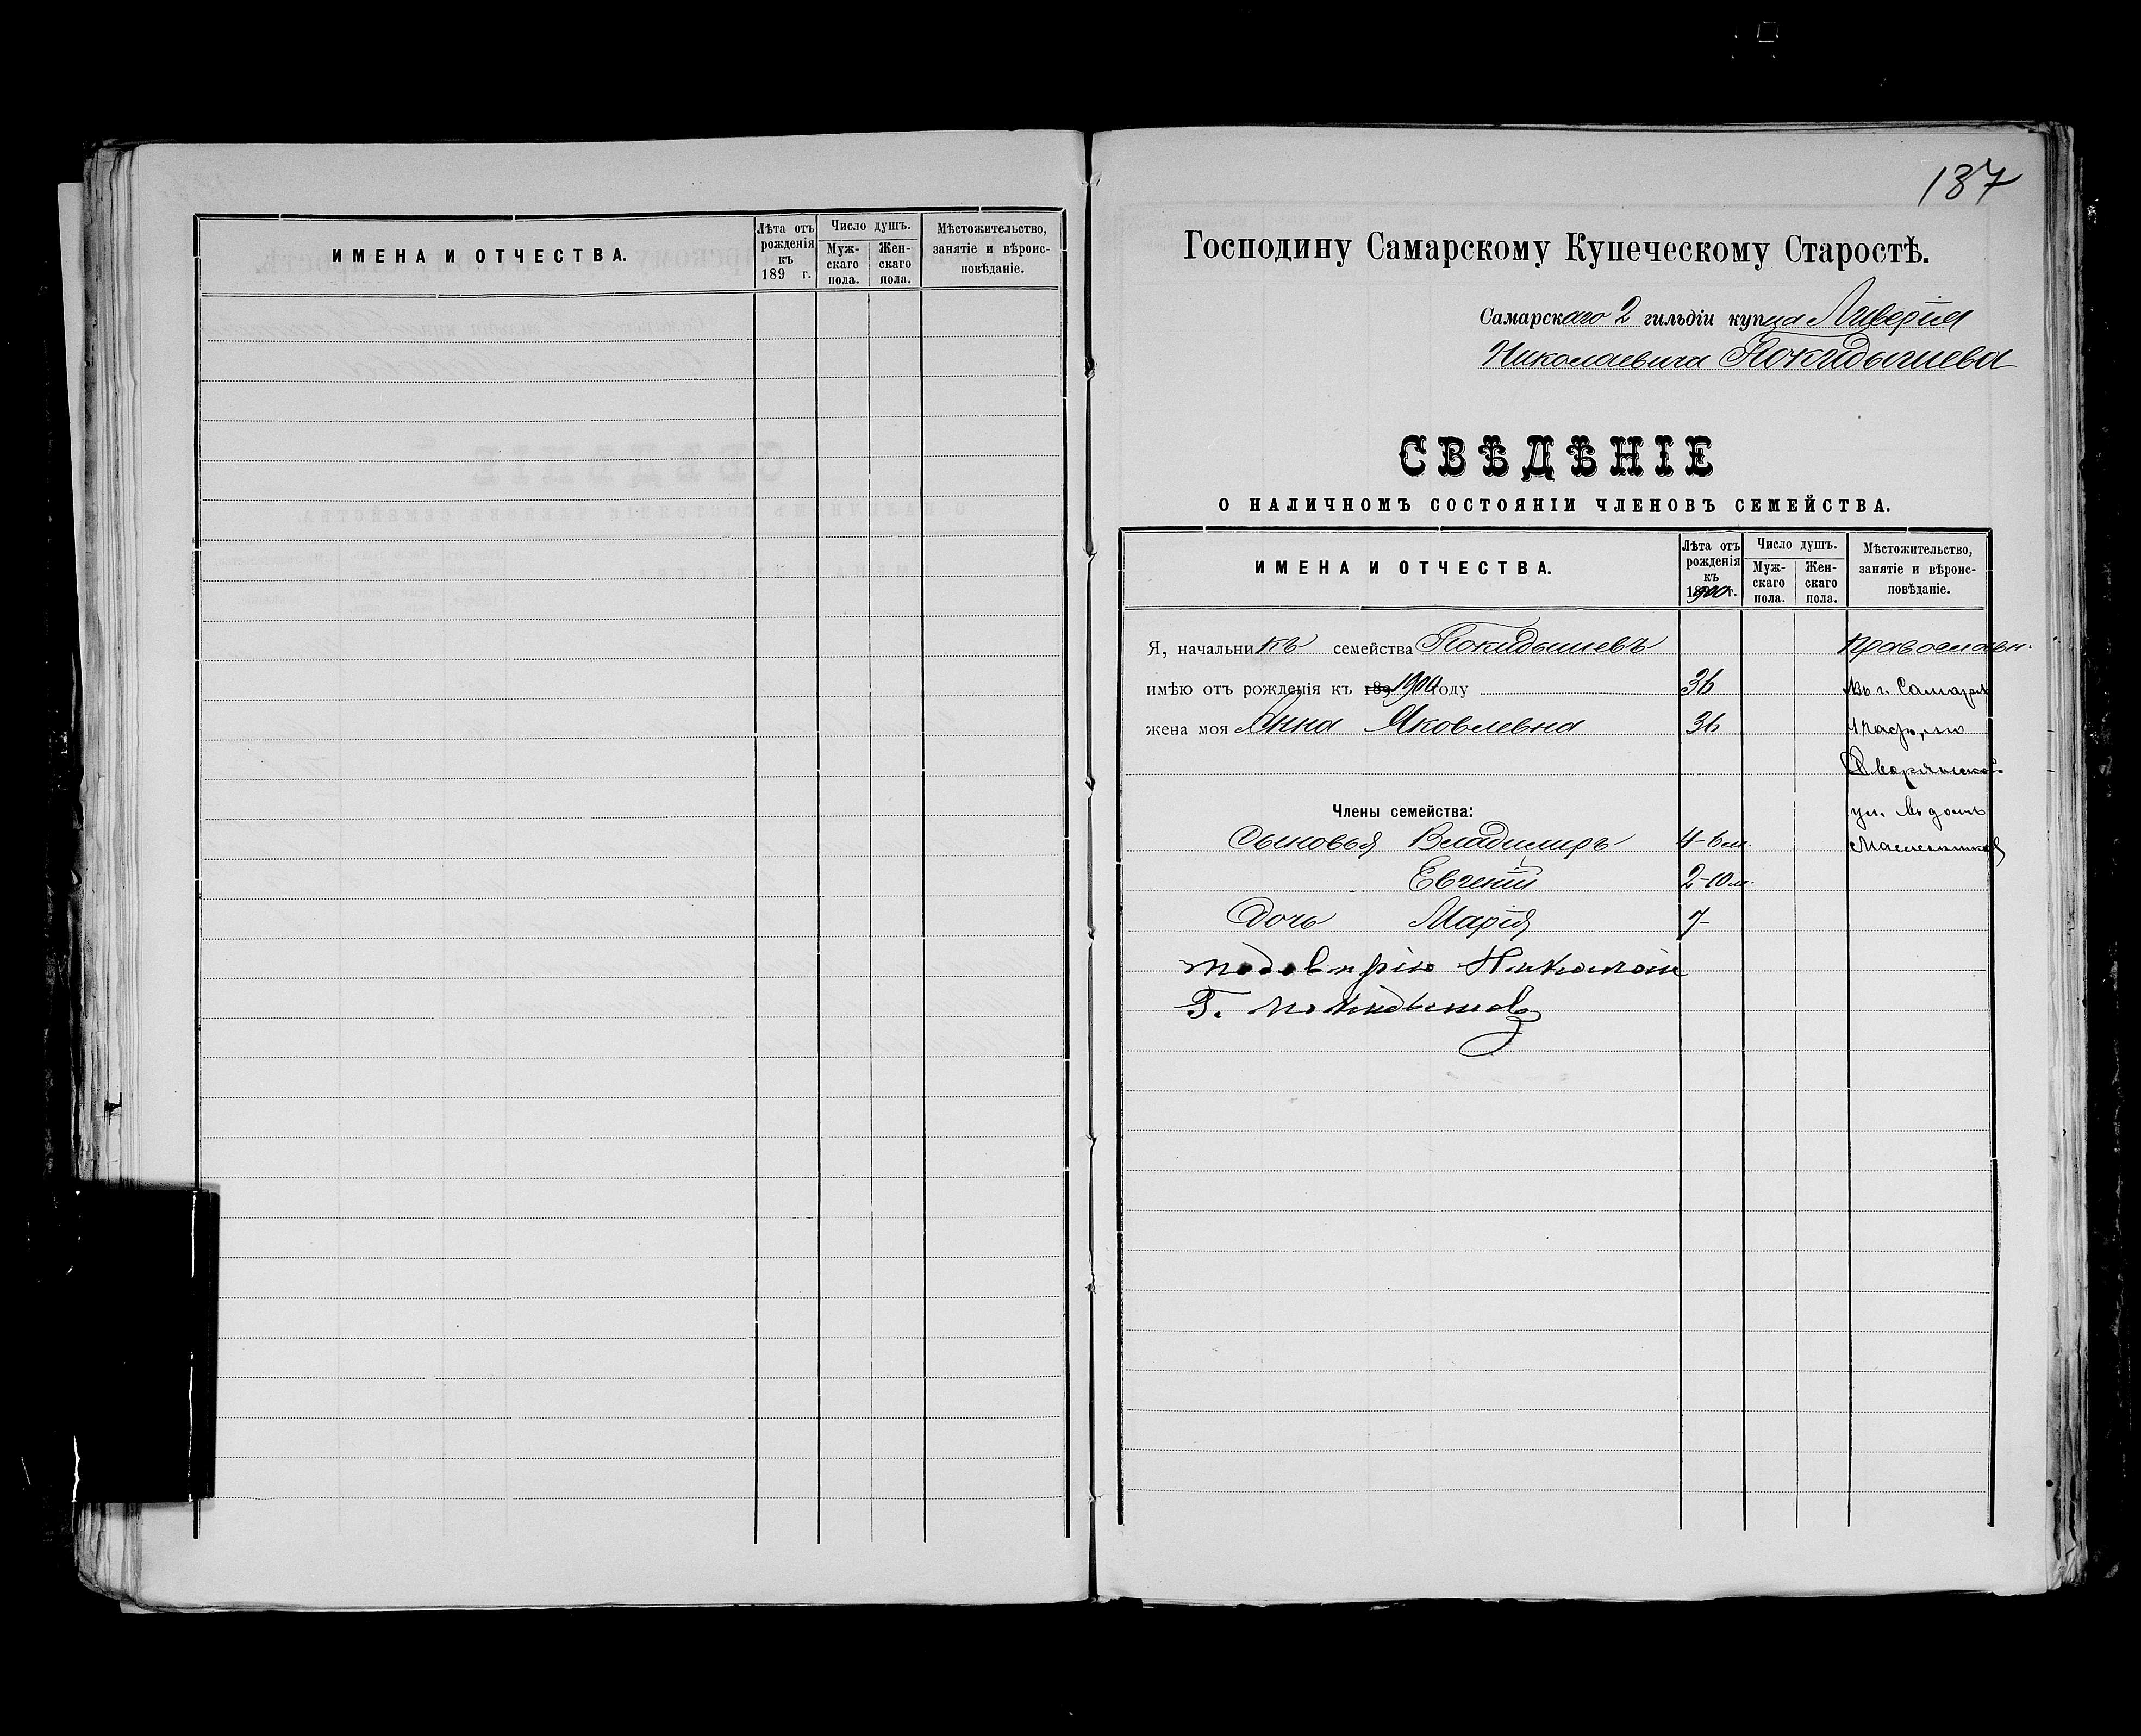 ИМЕНА И ОТЧЕСТВА.
Лѣта отъ рожденія къ 189 г.
Число душъ.
Мужскаго пола.
Женскаго пола.
Мѣстожительство, занятіе и вѣроисповѣданіе.
137
Господину Самарскому Купеческому Старостѣ.
Самарскаго 2 гильдіи купца Ливерія
Николаевича Покидышева
СВѢДѢНІЕ
О НАЛИЧНОМЪ СОСТОЯНІИ ЧЛЕНОВЪ СЕМЕЙСТВА.
ИМЕНА И ОТЧЕСТВА.
Лѣта отъ рожденія къ 1900 г.
Число душъ.
Мужскаго пола.
Женскаго пола.
Мѣстожительство, занятіе и вѣроисповѣданіе.
Я, начальникъ семейства Покидышевъ православн.
имѣю отъ рожденія къ 189 1900 году 36 Въ г. Самарѣ
жена моя Анна Яковлевна 36 1 части, по
Дворянской
Члены семейства: ул. въ домѣ
Сыновья Владимиръ 4-6 м.
Евгеній 2-10 м.
Дочь Марія 7-
Николай
Г. Покидышев